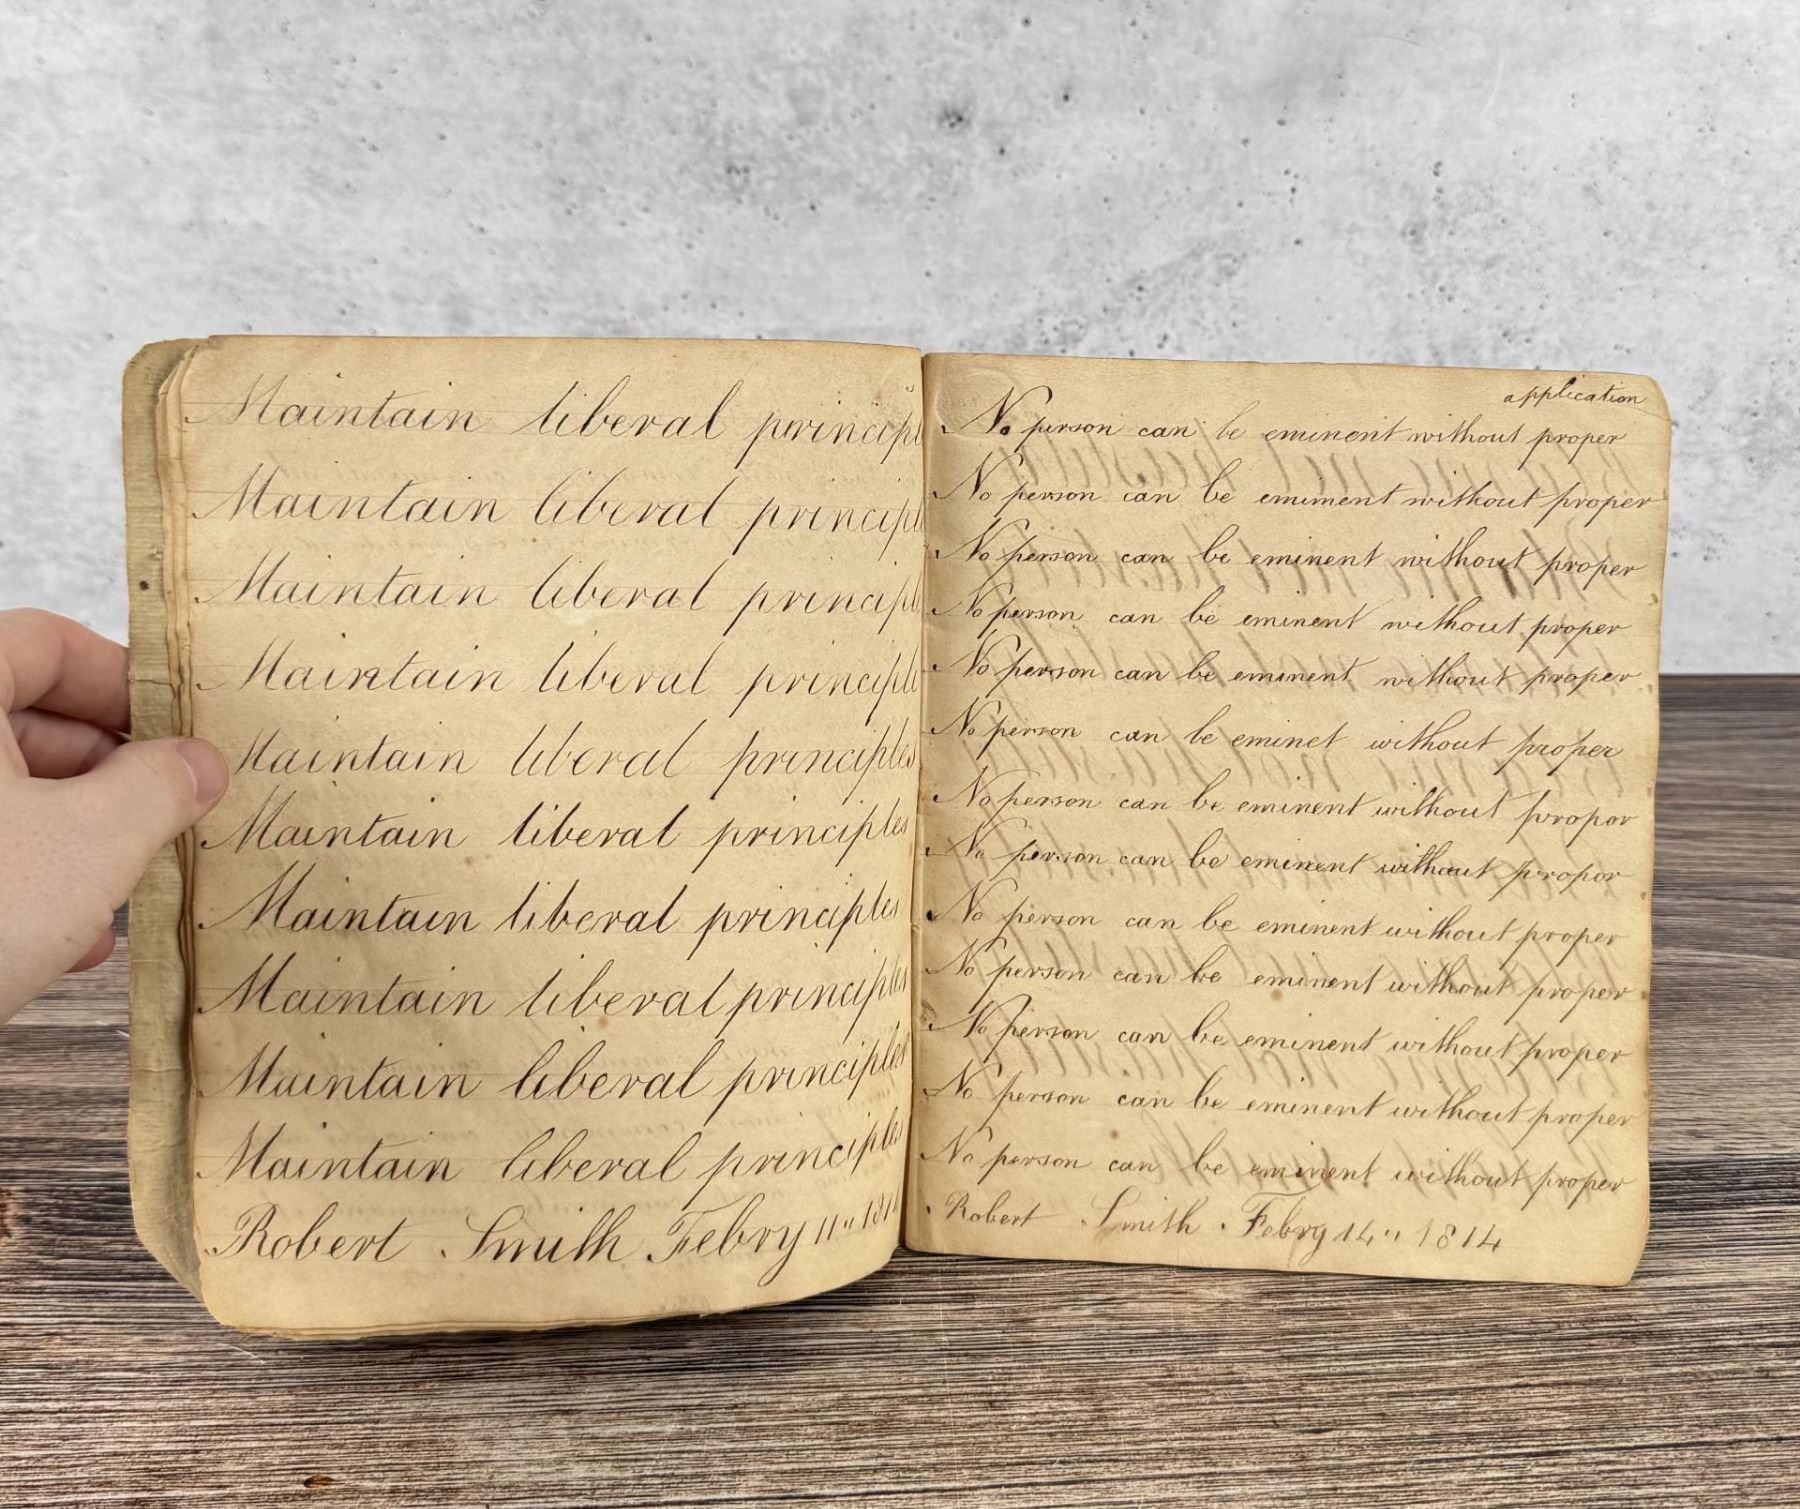 Maintain liberal principl
Maintain liberal principl
Maintain liberal principl
Maintain liberal principl
Maintain liberal principles
Maintain liberal principles
Maintain liberal principles
Maintain liberal principles
Maintain liberal principles
Maintain liberal principles
Robert Smith Febry 11"
application
No person can be eminent without proper
No person can be emiment without proper
No person can be eminent without proper
No person can be eminent without proper
No person can be eminent without proper
No person can be eminet without proper
No person can be eminent without propor
No person can be eminent without propor
No person can be eminent without proper
No person can be eminent without proper
No person can be eminent without proper
No person can be eminent without proper
No person can be eminent without proper
Robert Smith . Febry 14" 1814